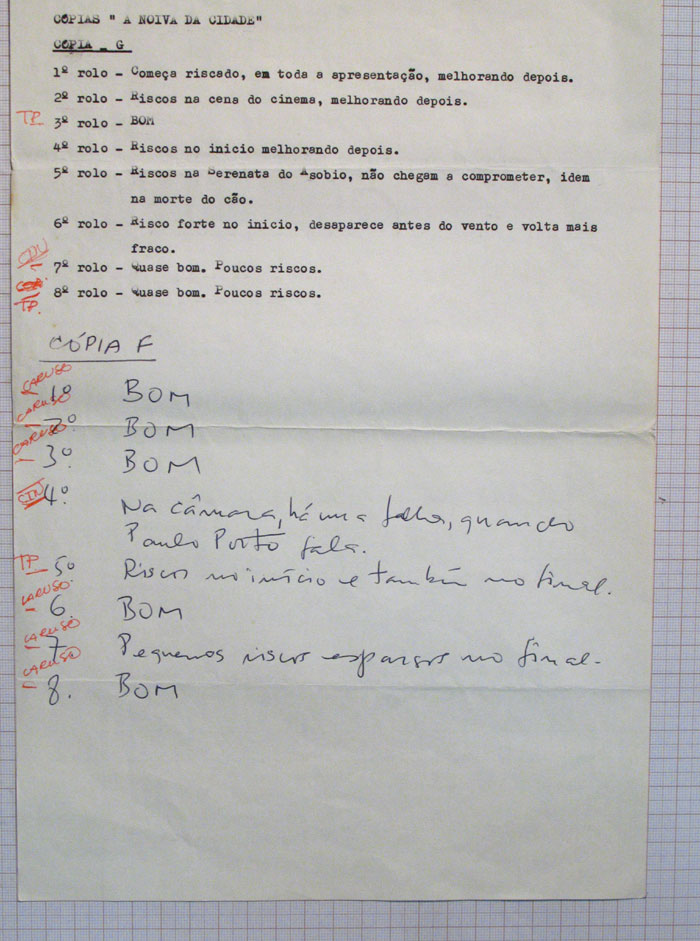 CÓPIAS " A NOIVA DA CIDADE"
CÓPIA _ G
1º rolo - Começa riscado, em toda a apresentação, melhorando depois.
2º rolo - Riscos na cena do cinema, melhorando depois.
TP. 3º rolo - BOM
4º rolo - Riscos no inicio melhorando depois.
5º rolo - Riscos na Serenata do Asobio, não chegam a comprometer, idem
na morte do cão.
6º rolo - Risco forte no inicio, desaparece antes do vento e volta mais
fraco.
7º rolo - Quase bom. Poucos riscos.
TP. 8º rolo - Quase bom. Poucos riscos.
CÓPIA F
CARUSO 1º BOM
CARUSO 2º BOM
CARUSO 3º. BOM
CIN 4º. Na câmara, há uma falha, quando
Paulo Porto fala.
TP 5º Riscos no início e também no final.
CARUSO 6. BOM
CARUSO 7 Pequenos riscos esparsos no final.
CARUSO 8. BOM